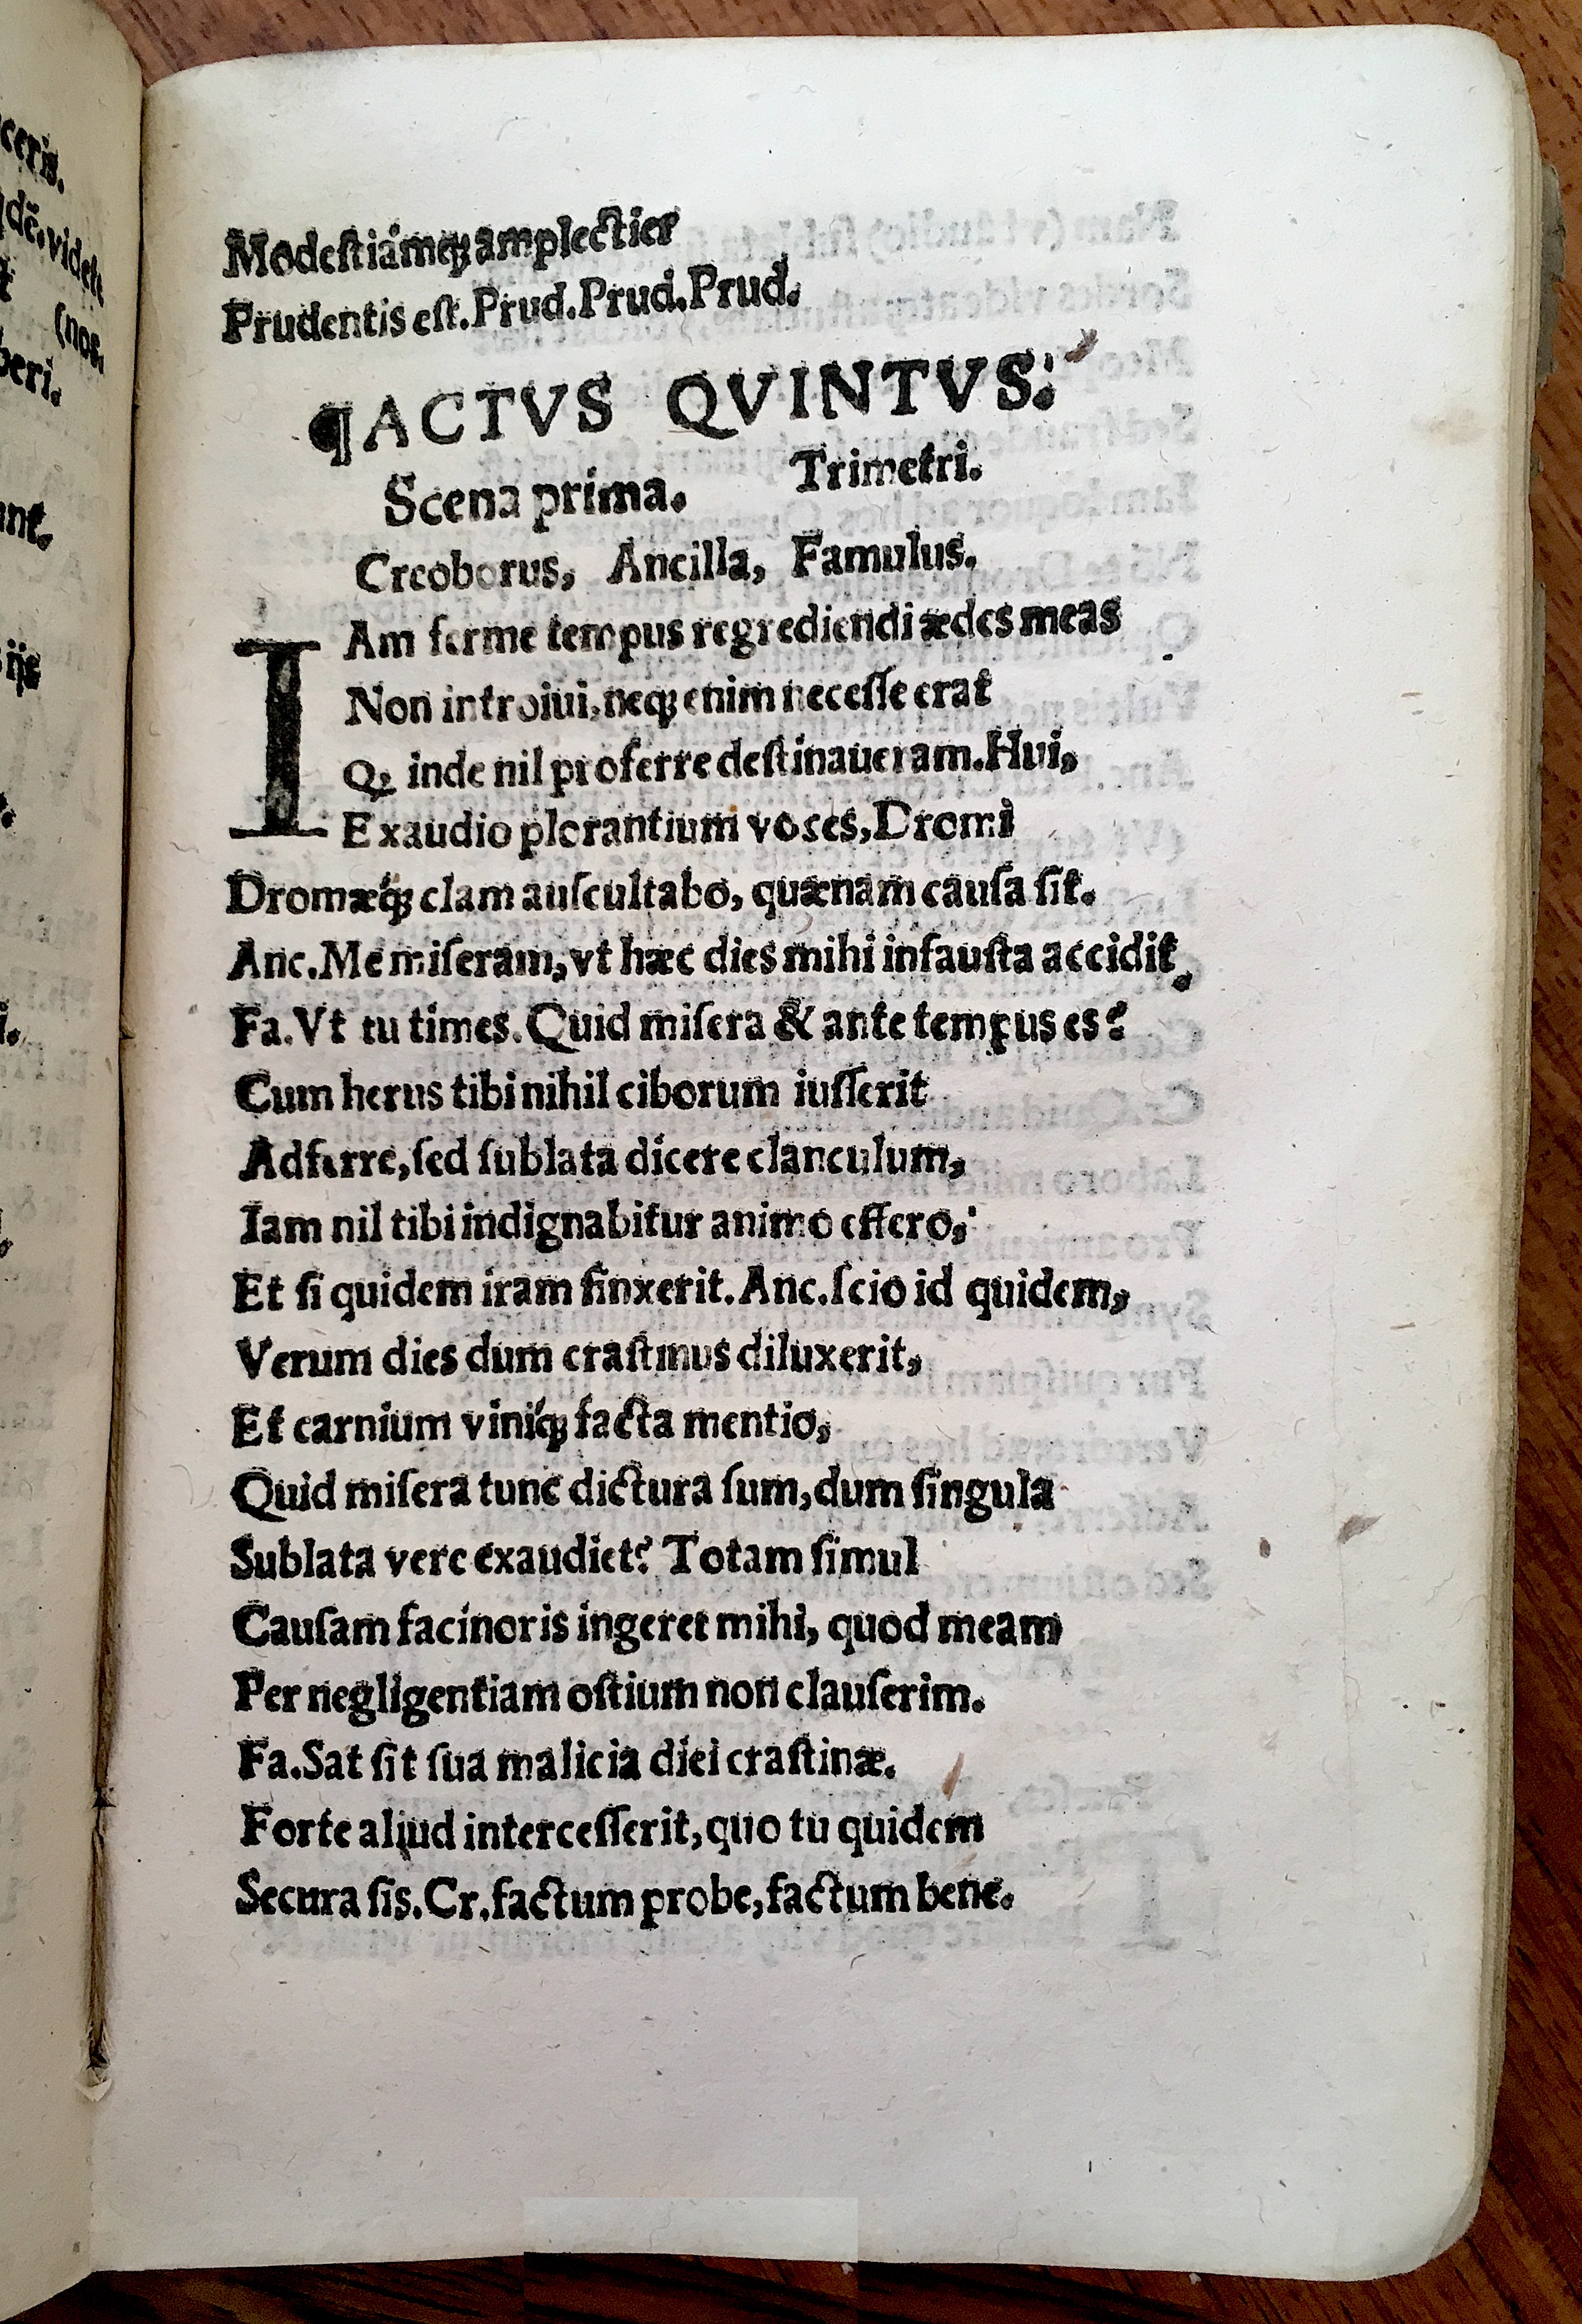 ceris.
dē.videt
(nos.
beri.
unt.
ijs
Modeſtiámqꝫ amplectier
Prudentis eſt. Prud. Prud. Prud.
¶ ACTVS QVINTVS.
Scena prima. Trimetri.
Creoborus, Ancilla, Famulus.
IAm ferme tempus regrediendi ædes meas
Non introiui, neqꝫ enim necesse erat
Qꝫ inde nil proferre deſtinaueram. Hui,
Exaudio plorantium voces, Dromi
Dromæq́ꝫ clam auſcultabo, quænam cauſa ſit.
Anc. Me miſeram, vt hæc dies mihi infauſta accidit.
Fa. Vt tu times. Quid miſera & ante tempus es?
Cum herus tibi nihil ciborum iuſſerit
Adferre, ſed ſublata dicere clanculum,
Iam nil tibi indignabitur animo effero,
Et ſi quidem iram finxerit. Anc. ſcio id quidem,
Verum dies dum craſtinus diluxerit,
Et carnium viniq́ꝫ facta mentio,
Quid miſera tunc dictura ſum, dum ſingula
Sublata vere exaudiet? Totam ſimul
Cauſam facinoris ingeret mihi, quod meam
Per negligentiam oſtium non clauſerim.
Fa. Sat ſit ſua malicia diei craſtinæ.
Forte aliud interceſſerit, quo tu quidem
Secura ſis. Cr. factum probe, factum bene.